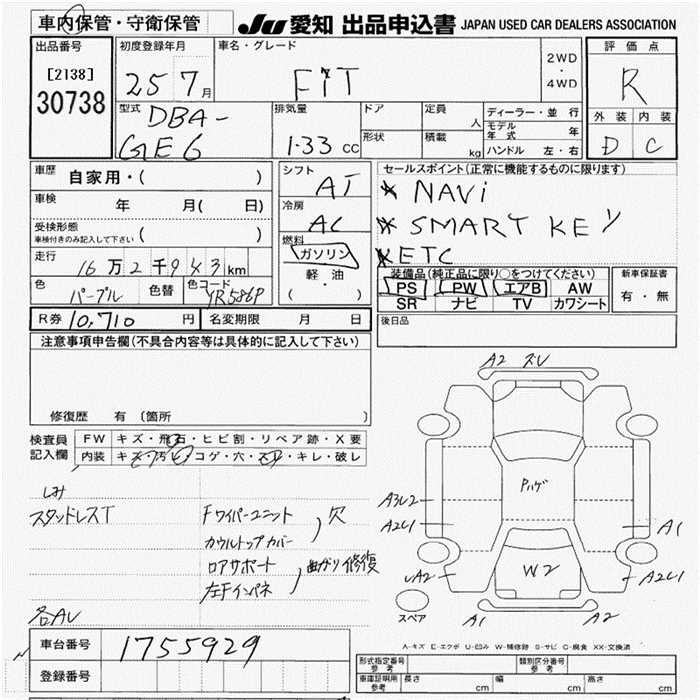 車内保管・守衛保管
JU 愛知 出品申込書 JAPAN USED CAR DEALERS ASSOCIATION
出品番号
[2138]
30738
初度登録年月
25 7月
車名・グレード
FiT
2WD
・
4WD
評価点
R
外装 内装
D C
型式
DBA-
GE6
排気量
1.33 cc
ドア
形状
定員
人
積載
kg
ディーラー・並行
モデル
年式 年
ハンドル 左・右
車歴
自家用・( )
車検
年 月( 日)
受検形態
車検付きのみ記入して下さい ( )
走行
16万2千943km
色
パープル
色替
色コード
YR586P
シフト
AT
冷房
AC
燃料
ガソリン
軽油
( ・ )
セールスポイント(正常に機能するものに限ります)
* NAVi
* SMART KEY
* ETC
装備品(純正品に限り○をつけてください)
PS PW エアB AW
SR ナビ TV カワシート
新車保証書
有・無
後日品
R券 10,710 円
名変期限 月 日
注意事項申告欄(不具合内容等は具体的に記入して下さい)
修復歴 有(箇所 )
検査員
記入欄
FW キズ・飛石・ヒビ割・リペア跡・X要
内装 キズ・汚レ・コゲ・穴・スレ・キレ・破レ
しみ
スタッドレスT
Fワイパーユニット
カウルトップカバー
欠
ロアサポート
左Fインパネ
曲がり修復
各AU
A2 ズレ
Pハゲ
A3U2
A2U1
A1
UA2
W2
A2U1
スペア
A1
A2
A-キズ E-エクボ U-凹み W-補修跡 S-サビ C-腐食 XX-交換済
車台番号
1755929
登録番号
形式指定番号
参考
類別区分番号
参考
車庫証明用
参考
長さ cm
幅 cm
高さ cm